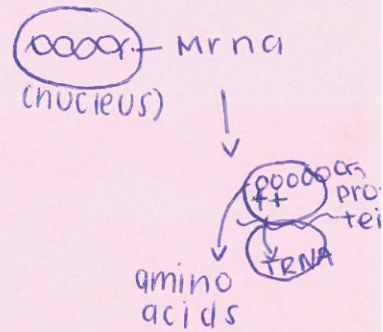 Mrna
(nucleus)
pro-
tei
tRNA
amino
acids